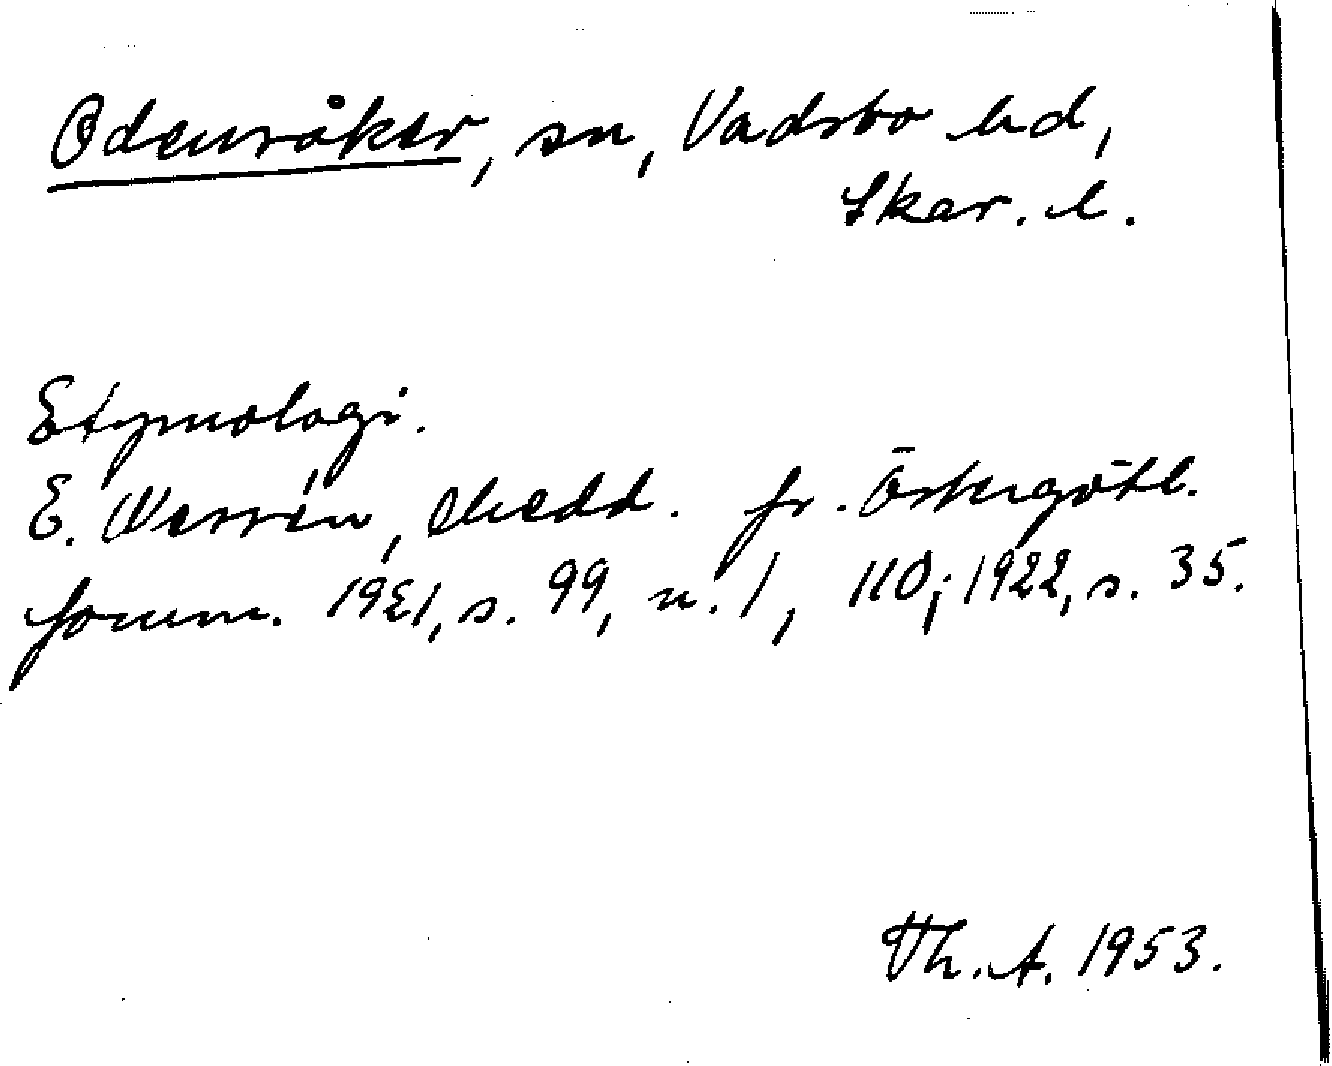 Odensåker, sn, Vadsbo hd,
Skar. l.
Etymologi.
E. Wessén, Medd. fr. Östergötl.
fornm. 1921, s. 99, n. 1, 110; 1922, s. 35.
Th. A. 1953.